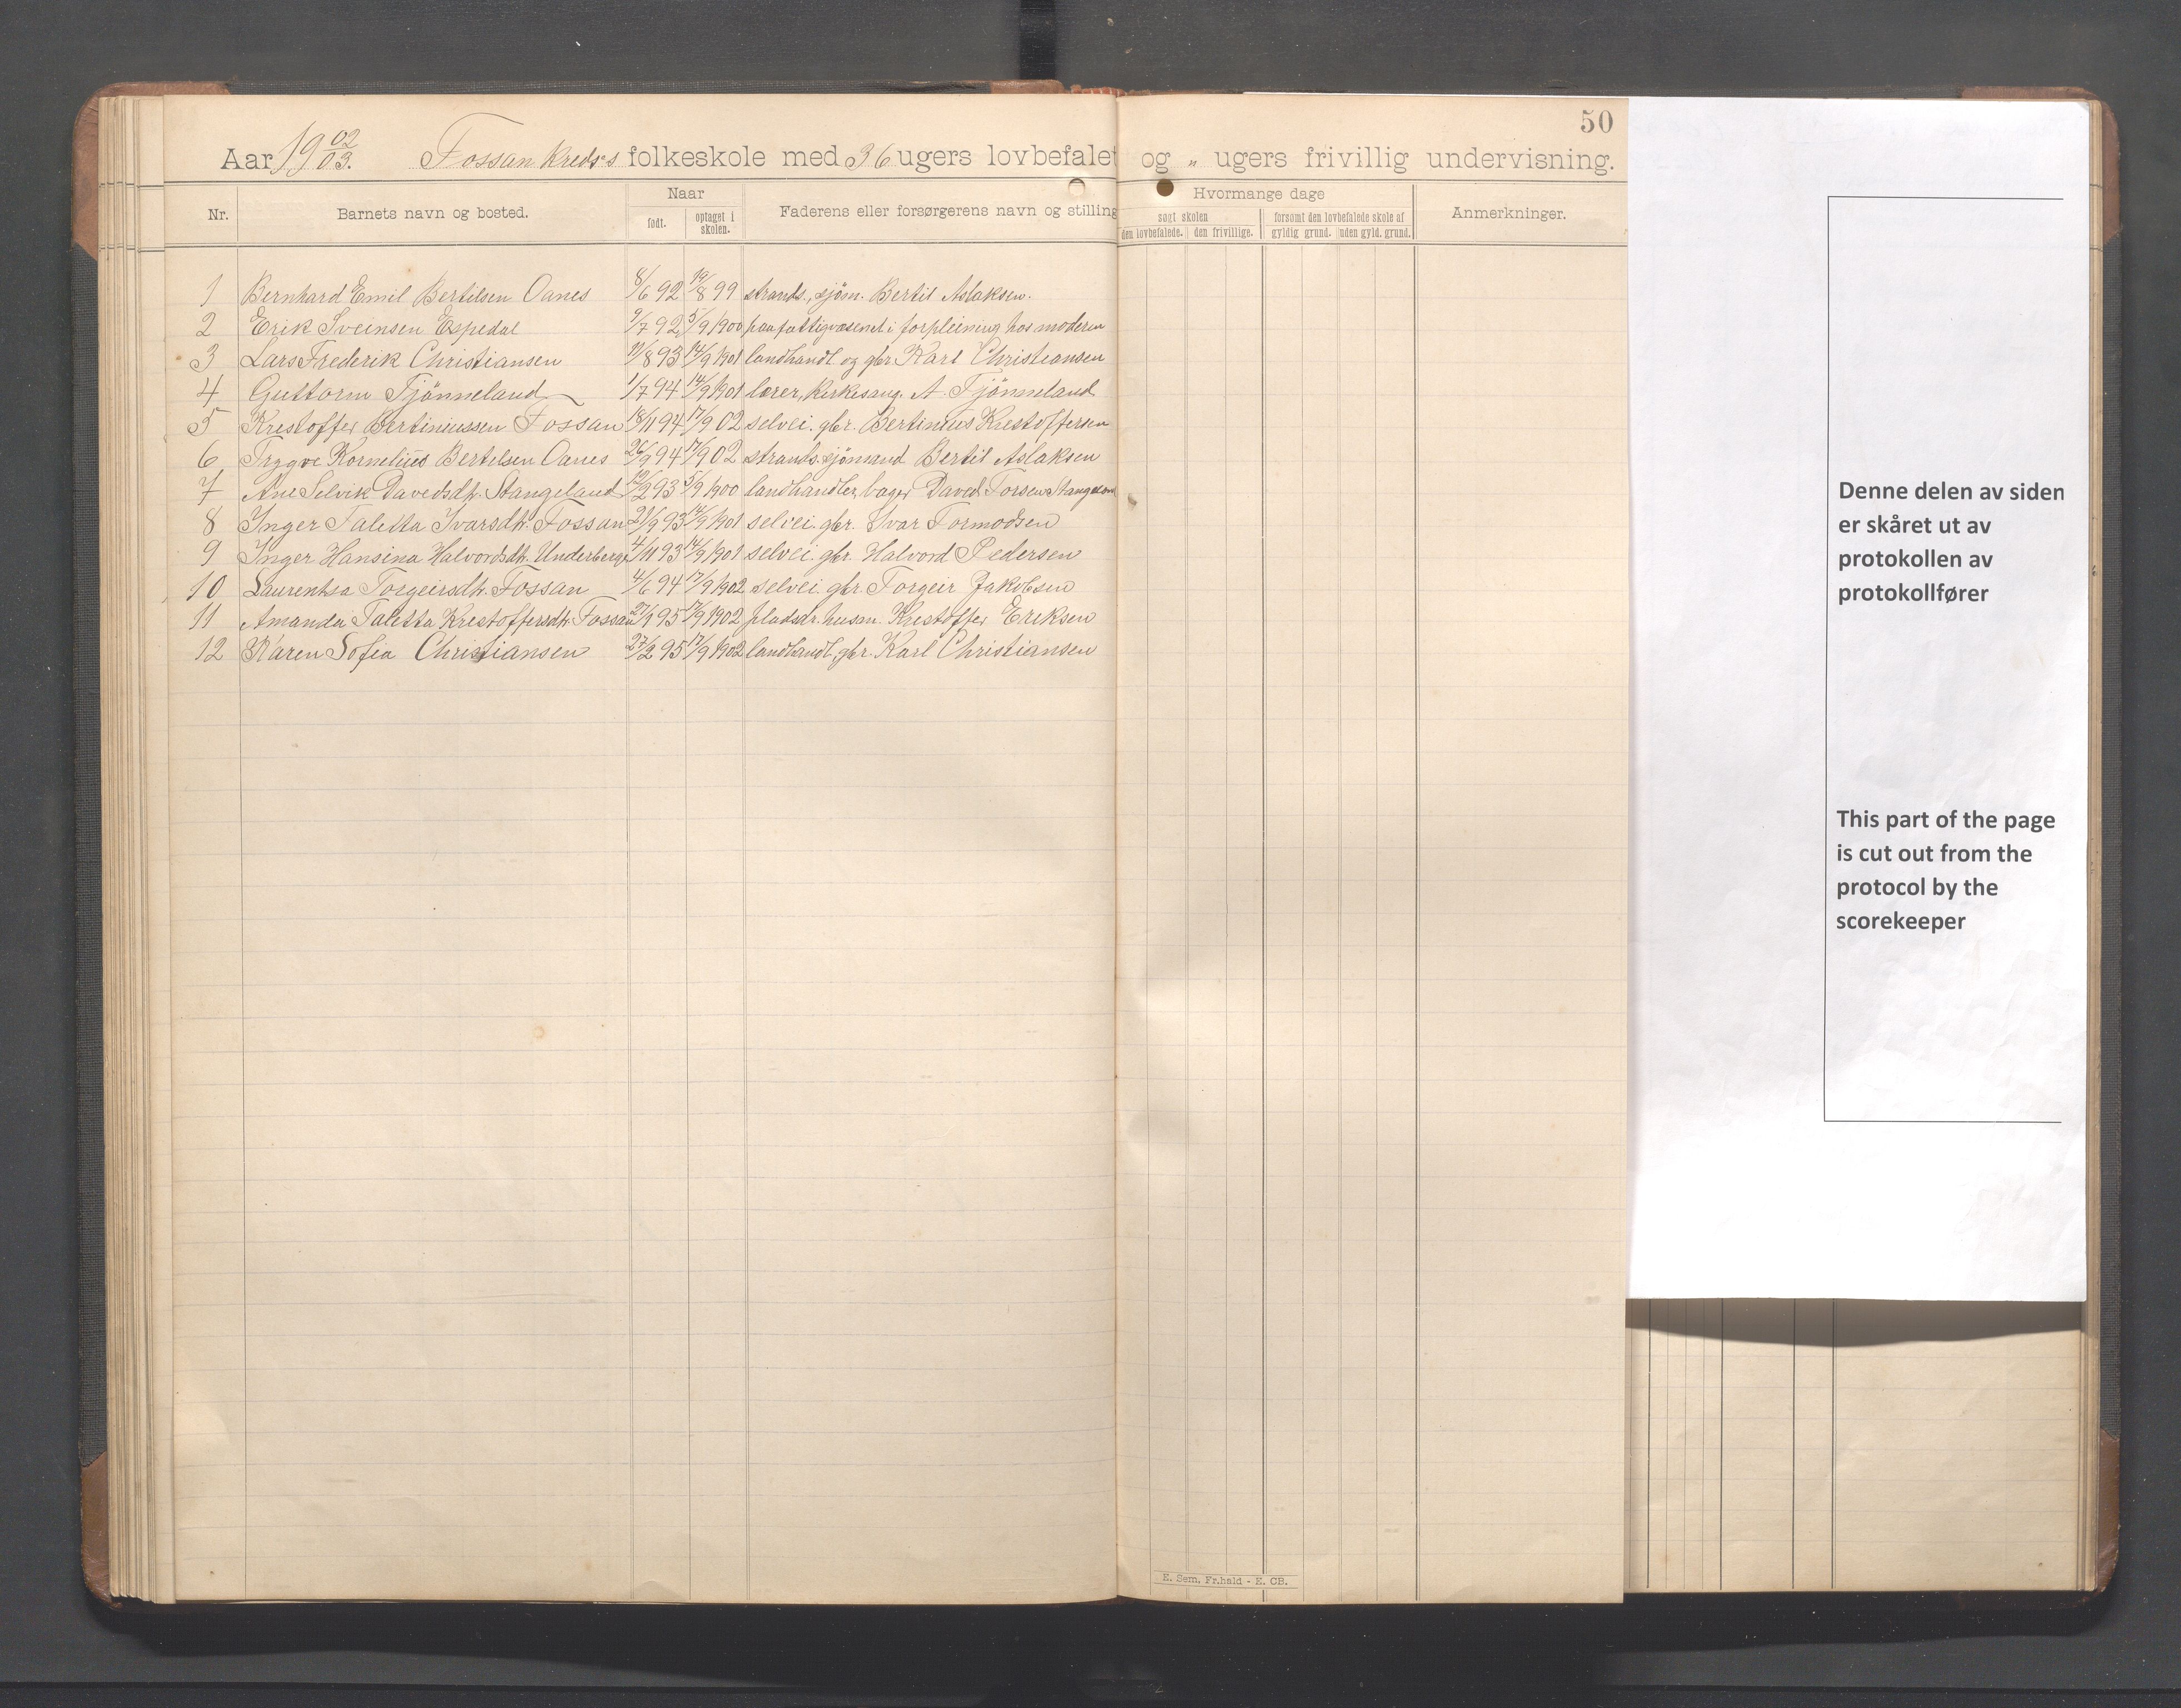 50
Aar 1902/03. Fossan kreds's folkeskole med 36 ugers lovbefalet og „ ugers frivillig undervisning.
Nr. Barnets navn og bosted. Naar født. optaget i skolen. Faderens eller forsørgerens navn og stilling Hvormange dage søgt skolen den lovbefalede. den frivillige. forsømt den lovbefalede skole af gyldig grund. uden gyld. grund. Anmerkninger.
1 Bernhard Emil Bertilsen Oanes 8/6 92 19/8 99 strands., sjöm. Bertil Aslaksen.
2 Erik Sveinsen Espedal 9/7 92 5/9 1900 paa fattigvæsenet i forpleining hos moderen
3 Lars Frederik Christiansen 11/8 93 14/9 1901 landhandl. og gbr. Karl Christiansen
4 Guttorm Tjönneland 1/7 94 14/9 1901 lærer, kirkesang. A. Tjönneland
5 Kristoffer Bertiniussen Fossan 18/11 94 17/9 02 selvei. gbr. Bertinius Kristoffersen
6 Trygve Kornelius Bertelsen Oanes 26/9 94 17/9 02 strands. sjömand Bertil Aslaksen
7 Ane Selvik Davedsdtr. Stangeland 12/2 93 5/9 1900 landhandler, bager Daved Torsen Stangeland
8 Inger Taletta Ivarsdtr. Fossan 21/9 93 14/9 1901 selvei. gbr. Ivar Tormodsen
9 Inger Hansina Halvordsdtr. Underberge 4/11 93 14/9 1901 selvei. gbr. Halvord Pedersen
10 Laurentsa Torgeirsdtr. Fossan 4/6 94 17/9 1902 selvei. gbr. Torgeir Jakobsen
11 Amanda Taletta Kristoffersdtr. Fossan 27/1 95 17/9 1902 pladsdr. husm. Kristoffer Eriksen
12 Karen Sofia Christiansen 27/2 95 17/9 1902 landhandl., gbr. Karl Christiansen
E. Sem, Fr.hald - E. CB.
Denne delen av siden
er skåret ut av
protokollen av
protokollfører
This part of the page
is cut out from the
protocol by the
scorekeeper